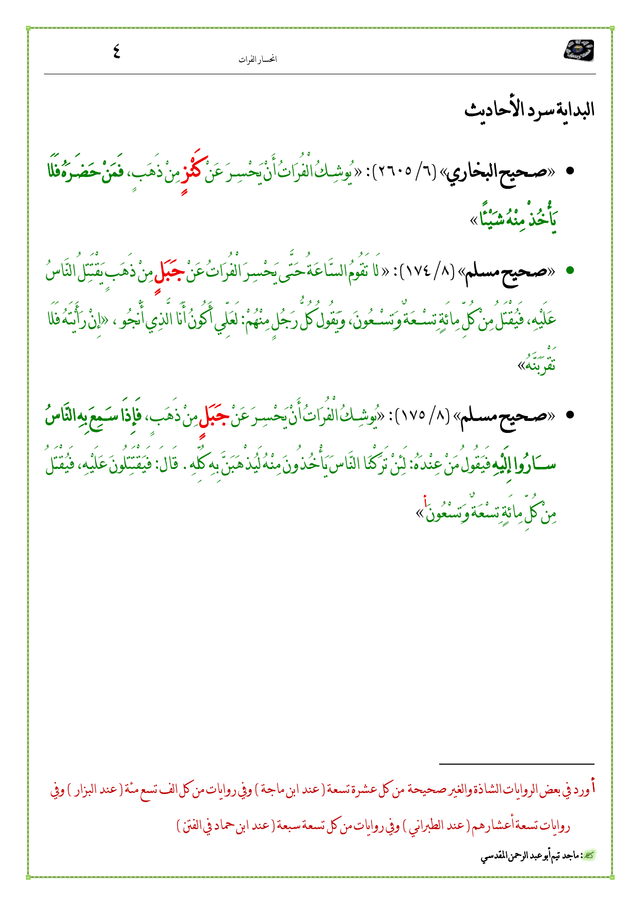 انحسار الفرات
٤
البداية سرد الأحاديث
• «صحيح البخاري» (٦/ ٢٦٠٥): «يُوشِكُ الْفُرَاتُ أَنْ يَحْسِرَ عَنْ كَنْزٍ مِنْ ذَهَبٍ، فَمَنْ حَضَرَهُ فَلَا
يَأْخُذْ مِنْهُ شَيْئًا»
• «صحيح مسلم» (٨/ ١٧٤): «لَا تَقُومُ السَّاعَةُ حَتَّى يَحْسِرَ الْفُرَاتُ عَنْ جَبَلٍ مِنْ ذَهَبٍ يَقْتَتِلُ النَّاسُ
عَلَيْهِ، فَيُقْتَلُ مِنْ كُلِّ مِائَةٍ تِسْعَةٌ وَتِسْعُونَ، وَيَقُولُ كُلُّ رَجُلٍ مِنْهُمْ: لَعَلِّي أَكُونُ أَنَا الَّذِي أَنْجُو ، «إِنْ رَأَيْتَهُ فَلَا
تَقْرَبَنَّهُ»
• «صحيح مسلم» (٨/ ١٧٥): «يُوشِكُ الْفُرَاتُ أَنْ يَحْسِرَ عَنْ جَبَلٍ مِنْ ذَهَبٍ، فَإِذَا سَمِعَ بِهِ النَّاسُ
سَارُوا إِلَيْهِ فَيَقُولُ مَنْ عِنْدَهُ: لَئِنْ تَرَكْنَا النَّاسَ يَأْخُذُونَ مِنْهُ لَيُذْهَبَنَّ بِهِ كُلِّهِ . قَالَ: فَيَقْتَتِلُونَ عَلَيْهِ، فَيُقْتَلُ
مِنْ كُلِّ مِائَةٍ تِسْعَةٌ وَتِسْعُونَ أ»
أ ورد في بعض الروايات الشاذة والغير صحيحة من كل عشرة تسعة ( عند ابن ماجة ) وفي روايات من كل الف تسع مئة ( عند البزار ) وفي
روايات تسعة أعشارهم ( عند الطبراني ) وفي روايات من كل تسعة سبعة ( عند ابن حماد في الفتن )
: ماجد تيم أبو عبد الرحمن المقدسي